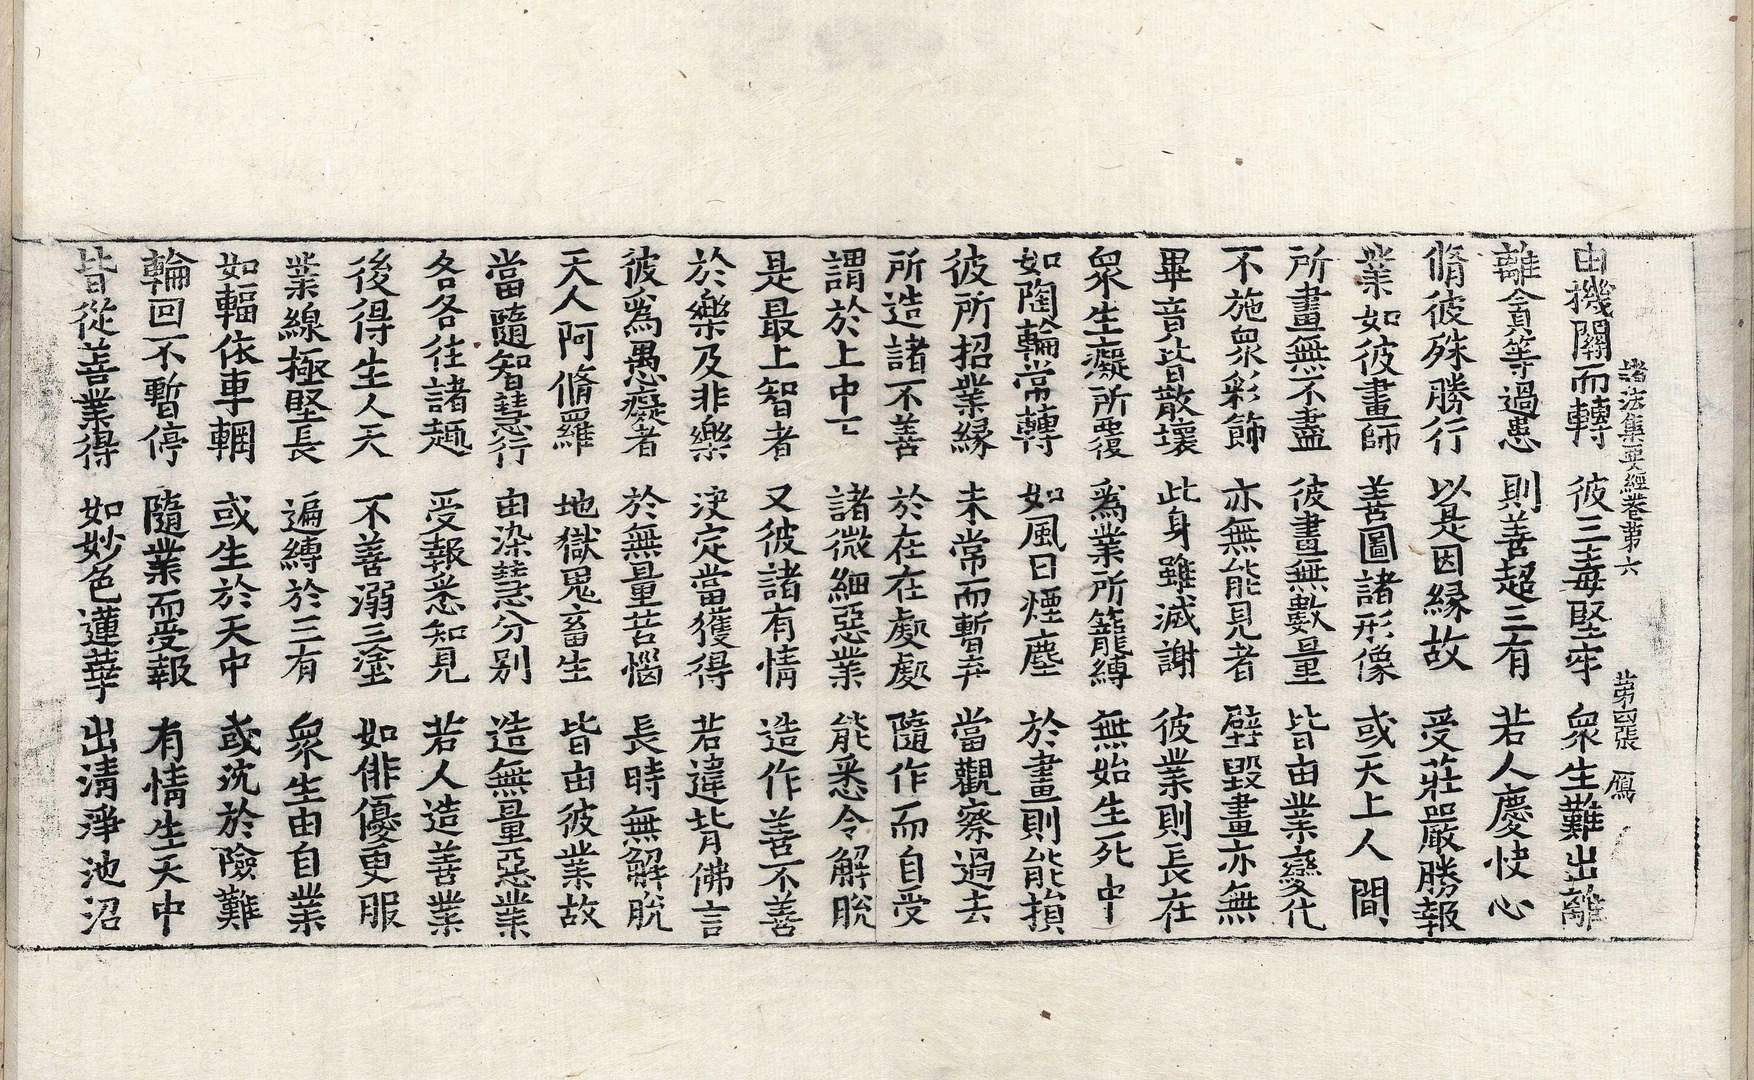 諸法集要經卷第六　第四張　鴈
由機關而轉　彼三毒堅牢　衆生難出離
離貪等過患　則善超三有　若人慶快心
脩彼殊勝行　以是因縁故　受莊嚴勝報
業如彼畫師　善圖諸形像　或天上人間
所畫無不盡　彼畫無數量　皆由業變化
不施衆彩飾　亦無能見者　壁毀畫亦無
畢竟皆散壞　此身雖滅謝　彼業則長在
衆生癡所覆　爲業所籠縛　無始生死中
如陶輪常轉　如風日煙塵　於畫則能損
彼所招業縁　未常而暫弃　當觀察過去
所造諸不善　於在在處處　隨作而自受
謂於上中下　諸微細惡業　能悉令解脫
是最上智者　又彼諸有情　造作善不善
於樂及非樂　決定當獲得　若違背佛言
彼爲愚癡者　於無量苦惱　長時無解脫
天人阿脩羅　地獄鬼畜生　皆由彼業故
當隨智慧行　由染慧分别　造無量惡業
各各往諸趣　受報悉知見　若人造善業
後得生人天　不善溺三塗　如俳優更服
業線極堅長　遍縛於三有　衆生由自業
如輻依車輞　或生於天中　或沈於險難
輪回不暫停　隨業而受報　有情生天中
皆從善業得　如妙色蓮華　出清淨池沼